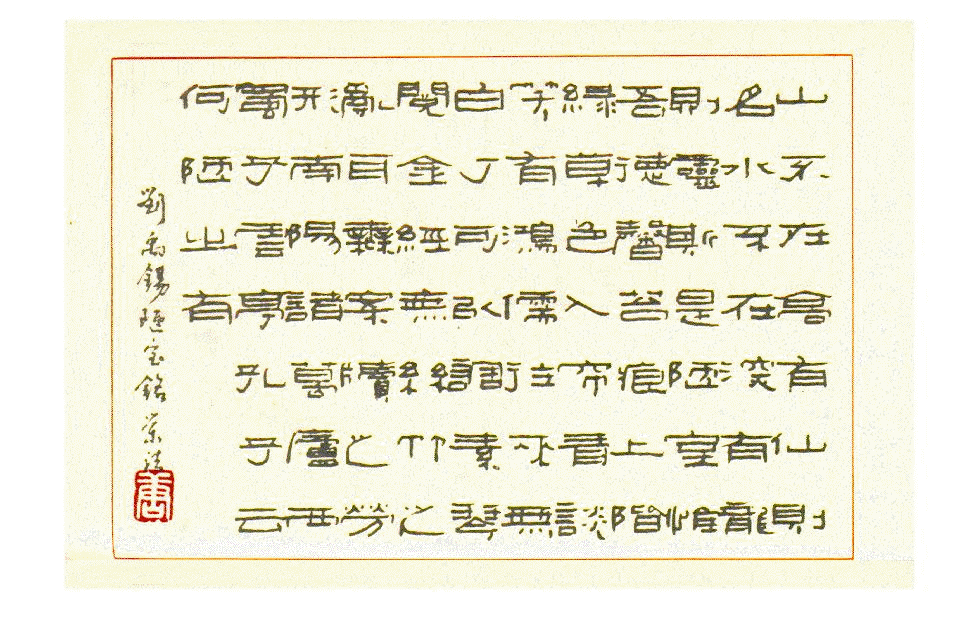 山不在高有仙則
名水不在深有龍
則靈斯是陋室惟
吾德馨苔痕上階
綠草色入帘青談
笑有鴻儒往來無
白丁可以調素琴
閱金經無絲竹之
亂耳無案牘之勞
形南陽諸葛廬西
蜀子雲亭孔子云
何陋之有
劉禹錫陋室銘